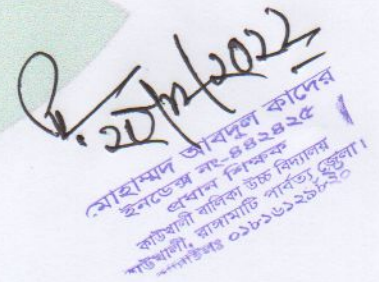 ২৫/১২/2022
মোহাম্মদ আবদুল কাদের
ইনডেক্স নং-৪৪২৪২৫
প্রধান শিক্ষক
কাউখালী বালিকা উচ্চ বিদ্যালয়
কাউখালী, রাঙ্গামাটি পার্বত্য জেলা।
০১৮১৬১২৯৮২০